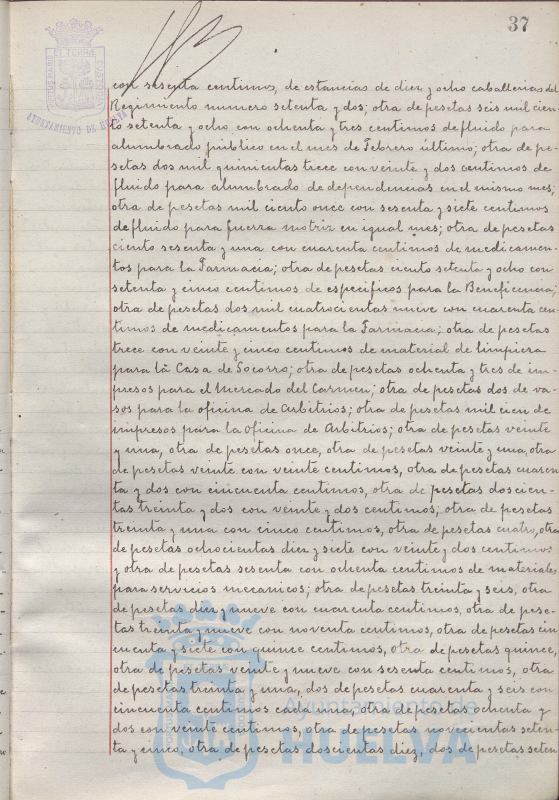 37
AYUNTAMIENTO DE HUELVA
con sesenta centimos, de estancias de diez y ocho caballerias del
Regimiento numero setenta y dos; otra de pesetas seis mil cien-
to setenta y ocho con ochenta y tres centimos de fluido para
alumbrado público en el mes de Febrero último; otra de pe-
setas dos mil quinientas trece con veinte y dos centimos de
fluido para alumbrado de dependencias en el mismo mes;
otra de pesetas mil ciento once con sesenta y siete centimos
de fluido para fuerza motriz en igual mes; otra de pesetas
ciento sesenta y una con cuarenta centimos de medicamen-
tos para la Farmacia; otra de pesetas ciento setenta y ocho con
setenta y cinco centimos de especificos para la Beneficencia;
otra de pesetas dos mil cuatrocientas nueve con cuarenta cen-
timos de medicamentos para la Farmacia; otra de pesetas
trece con veinte y cinco centimos de material de limpieza
para la Casa de Socorro; otra de pesetas ochenta y tres de im-
presos para el Mercado del Carmen; otra de pesetas dos de va-
sos para la oficina de Arbitrios; otra de pesetas mil cien de
impresos para la oficina de Arbitrios; otra de pesetas veinte
y una, otra de pesetas once, otra de pesetas veinte y una, otra
de pesetas veinte con veinte centimos, otra de pesetas cuaren-
ta y dos con cincuenta centimos, otra de pesetas doscien-
tas treinta y dos con veinte y dos centimos; otra de pesetas
treinta y una con cinco centimos, otra de pesetas cuatro, otra
de pesetas ochocientas diez y siete con veinte y dos centimos
y otra de pesetas sesenta con ochenta centimos de materiales
para servicios mecanicos; otra de pesetas treinta y seis, otra
de pesetas diez y nueve con cuarenta centimos, otra de pese-
tas treinta y nueve con noventa centimos, otra de pesetas cin-
cuenta y siete con quince centimos, otra de pesetas quince,
otra de pesetas veinte y nueve con sesenta centimos, otra
de pesetas treinta y una, dos de pesetas cuarenta y seis con
cincuenta centimos cada una, otra de pesetas ochenta y
dos con veinte centimos, otra de pesetas novecientas seten-
ta y cinco, otra de pesetas doscientas diez, dos de pesetas seten
Ayuntamiento de
HUELVA